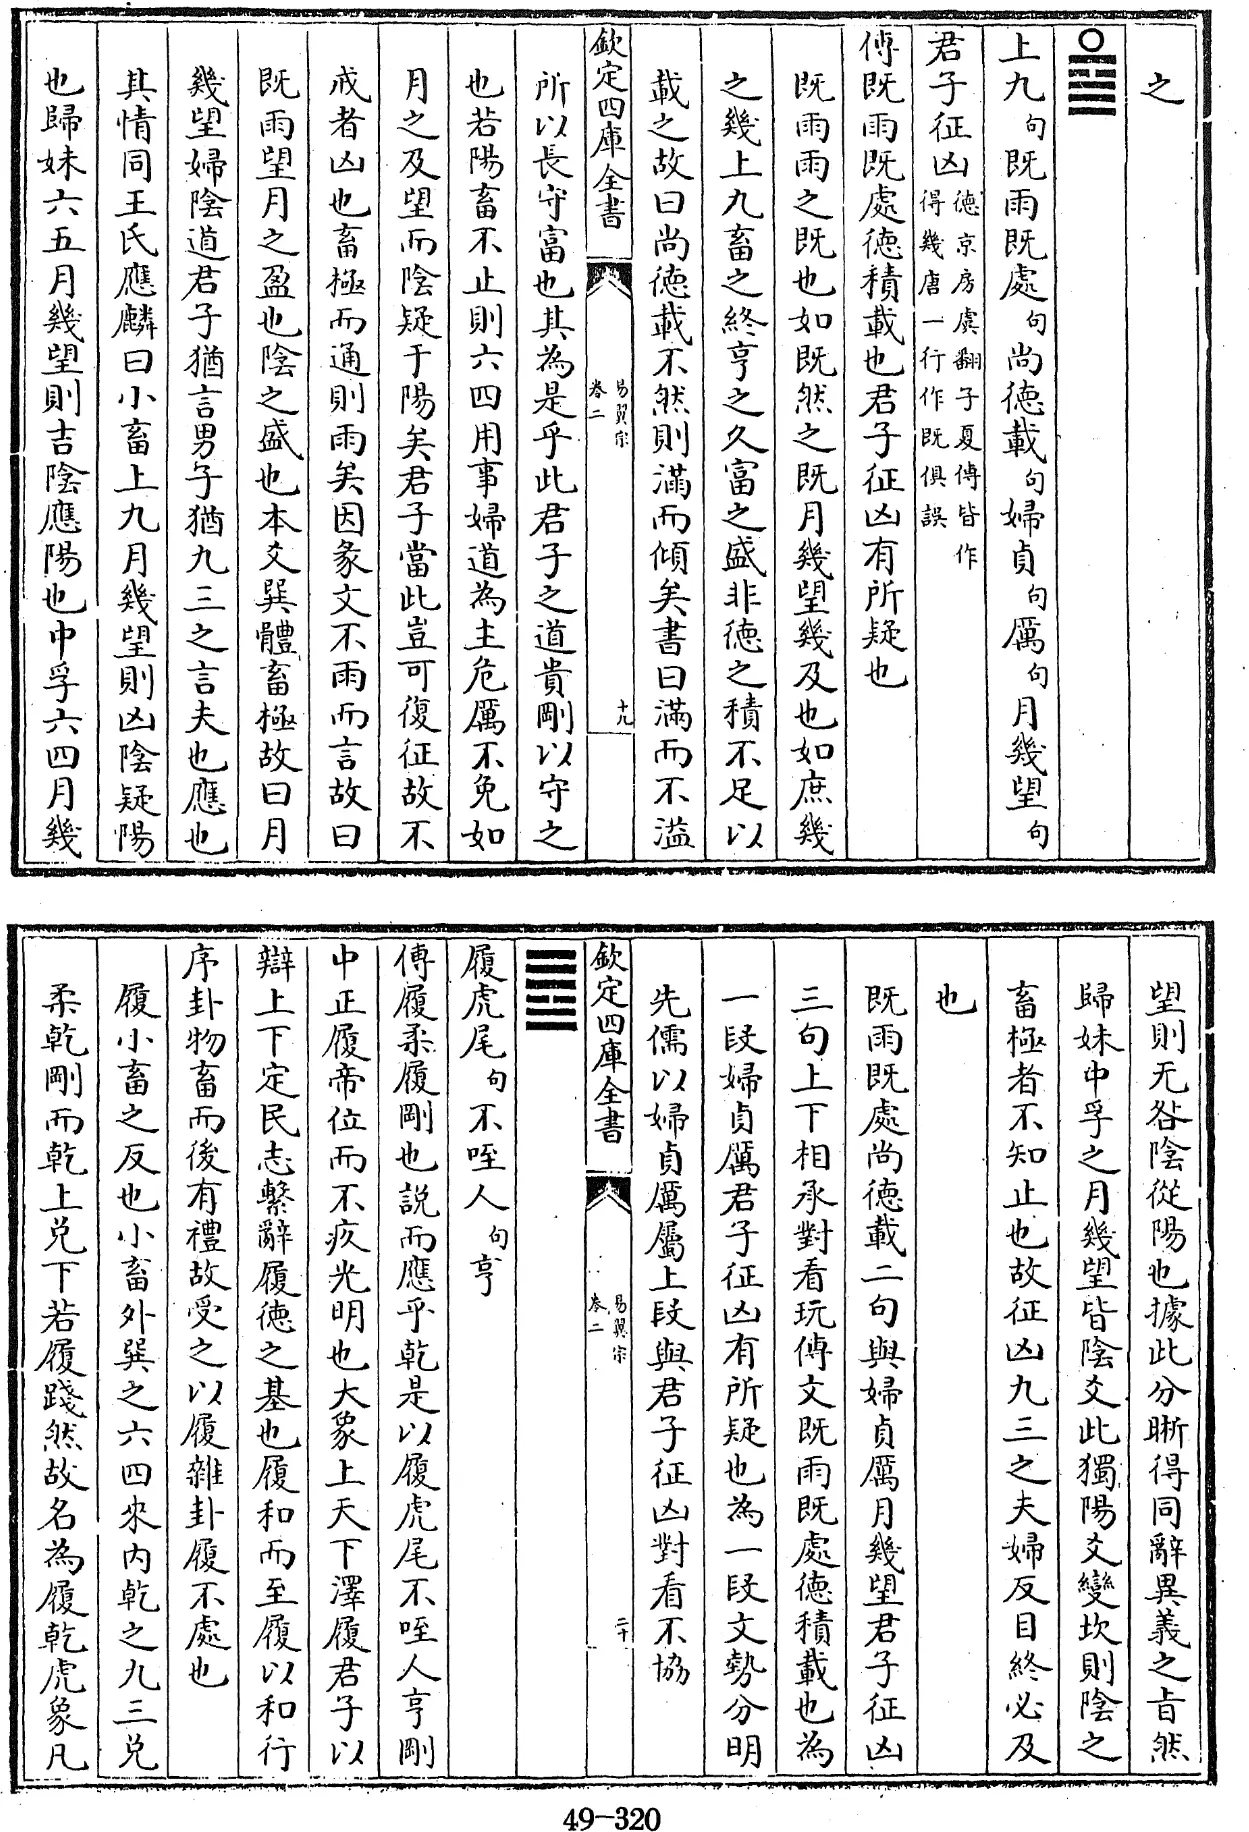 之
上九句既雨既處句尚德載句婦貞句厲句月幾望句
君子征凶德京房虞翻子夏傳皆作得幾唐一行作既俱誤
傳既雨既處德積載也君子征凶有所疑也
既雨雨之既也如既然之既月幾望幾及也如庶幾
之幾上九畜之終亨之久富之盛非德之積不足以
載之故曰尚德載不然則滿而傾矣書曰滿而不溢
欽定四庫全書 易翼宗 卷二 十九
所以長守富也其為是乎此君子之道貴剛以守之
也若陽畜不止則六四用事婦道為主危厲不免如
月之及望而陰疑于陽矣君子當此豈可復征故不
戒者凶也畜極而通則雨矣因彖文不雨而言故曰
既雨望月之盈也陰之盛也本爻巽體畜極故曰月
幾望婦陰道君子猶言男子猶九三之言夫也應也
其情同王氏應麟曰小畜上九月幾望則凶陰疑陽
也歸妹六五月幾望則吉陰應陽也中孚六四月幾
望則无咎陰從陽也據此分晰得同辭異義之旨然
歸妹中孚之月幾望皆陰爻此獨陽爻變坎則陰之
畜極者不知止也故征凶九三之夫婦反目終必及
也
既雨既處尚德載二句與婦貞厲月幾望君子征凶
三句上下相承對看玩傳文既雨既處德積載也為
一段婦貞厲君子征凶有所疑也為一段文勢分明
先儒以婦貞厲屬上段與君子征凶對看不協
欽定四庫全書 易翼宗 卷二 二十
履虎尾句不咥人句亨
傳履柔履剛也說而應乎乾是以履虎尾不咥人亨剛
中正履帝位而不疚光明也大象上天下澤履君子以
辯上下定民志繫辭履德之基也履和而至履以和行
序卦物畜而後有禮故受之以履雜卦履不處也
履小畜之反也小畜外巽之六四來內乾之九三兌
柔乾剛而乾上兌下若履踐然故名為履乾虎象凡
49-320